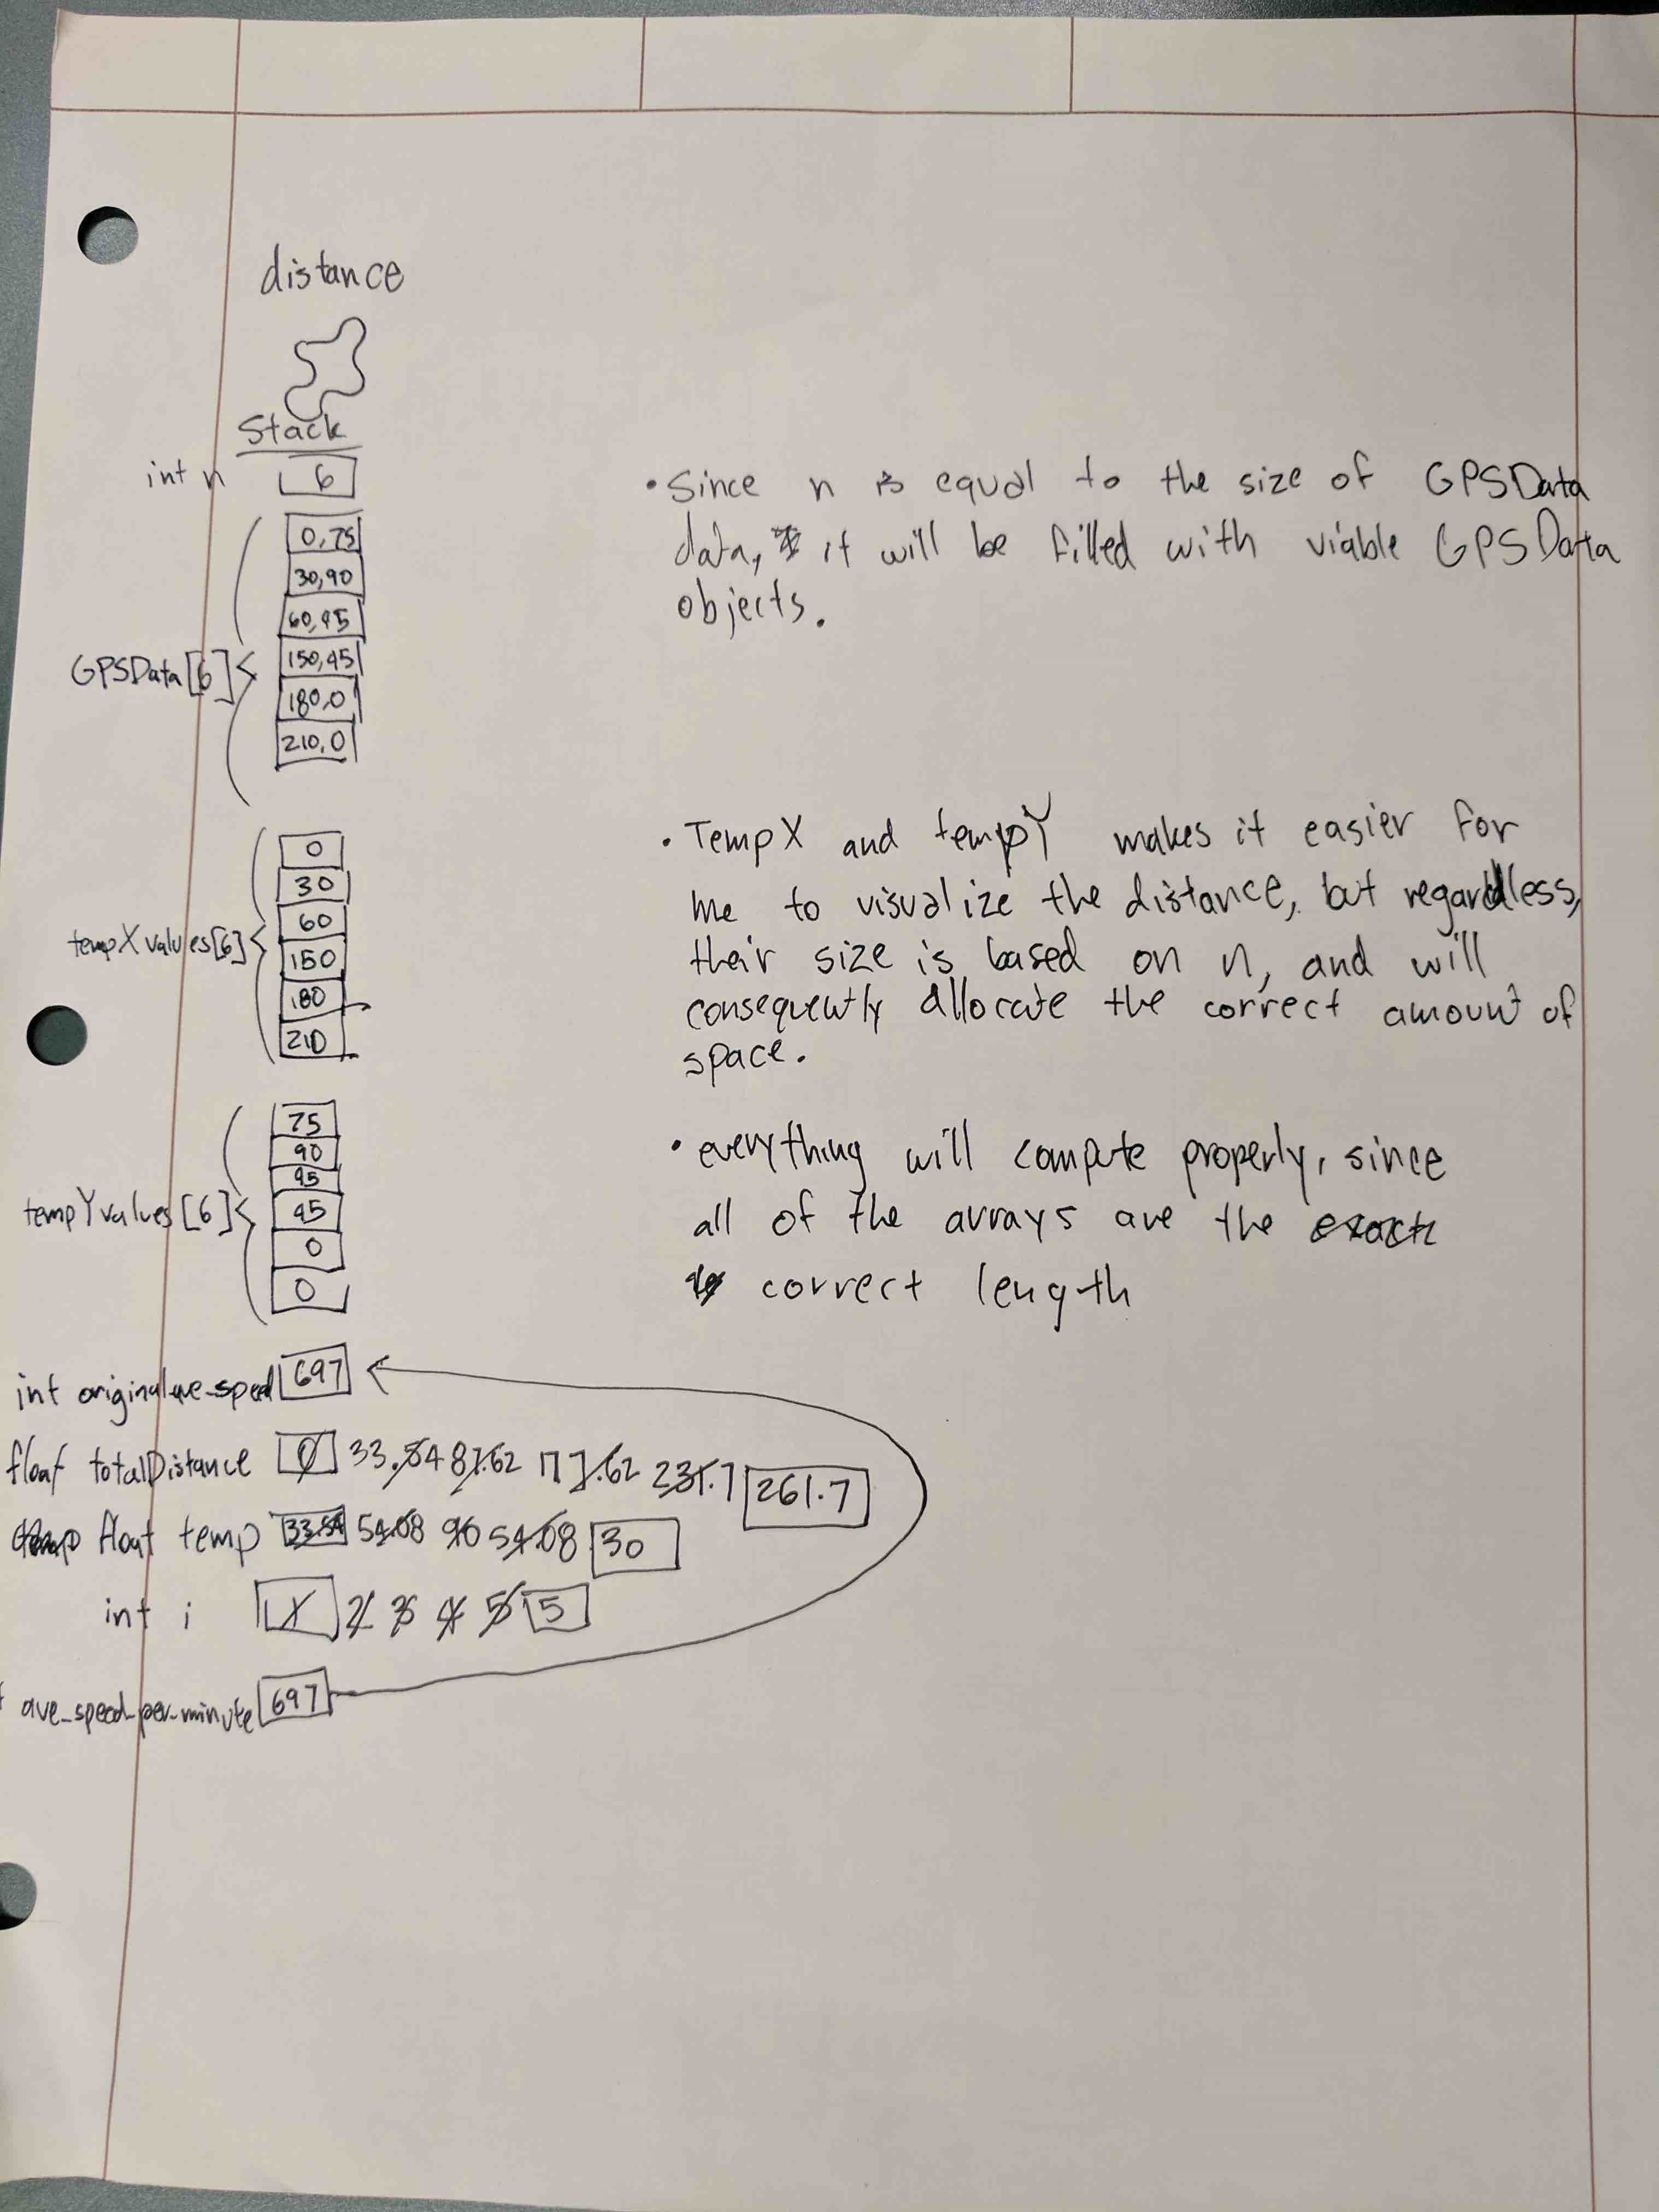 distance
Stack
int n 6
0,75
30,90
60,45
GPSData[6] 150,45
180,0
210,0
0
30
60
tempXvalues[6] 150
180
210
75
90
45
tempYvalues[6] 45
0
0
int originalave_speed 697
float totalDistance 0 33.54 87.62 177.62 231.7 261.7
float temp 33.54 54.08 90 54.08 30
int i 1 2 3 4 5 5
ave_speed_per_minute 697
• Since n is equal to the size of GPSData
data, it will be filled with viable GPSData
objects.
• TempX and tempY makes it easier for
me to visualize the distance, but regardless,
their size is based on n, and will
consequently allocate the correct amount of
space.
• everything will compute properly, since
all of the arrays are the exact
correct length